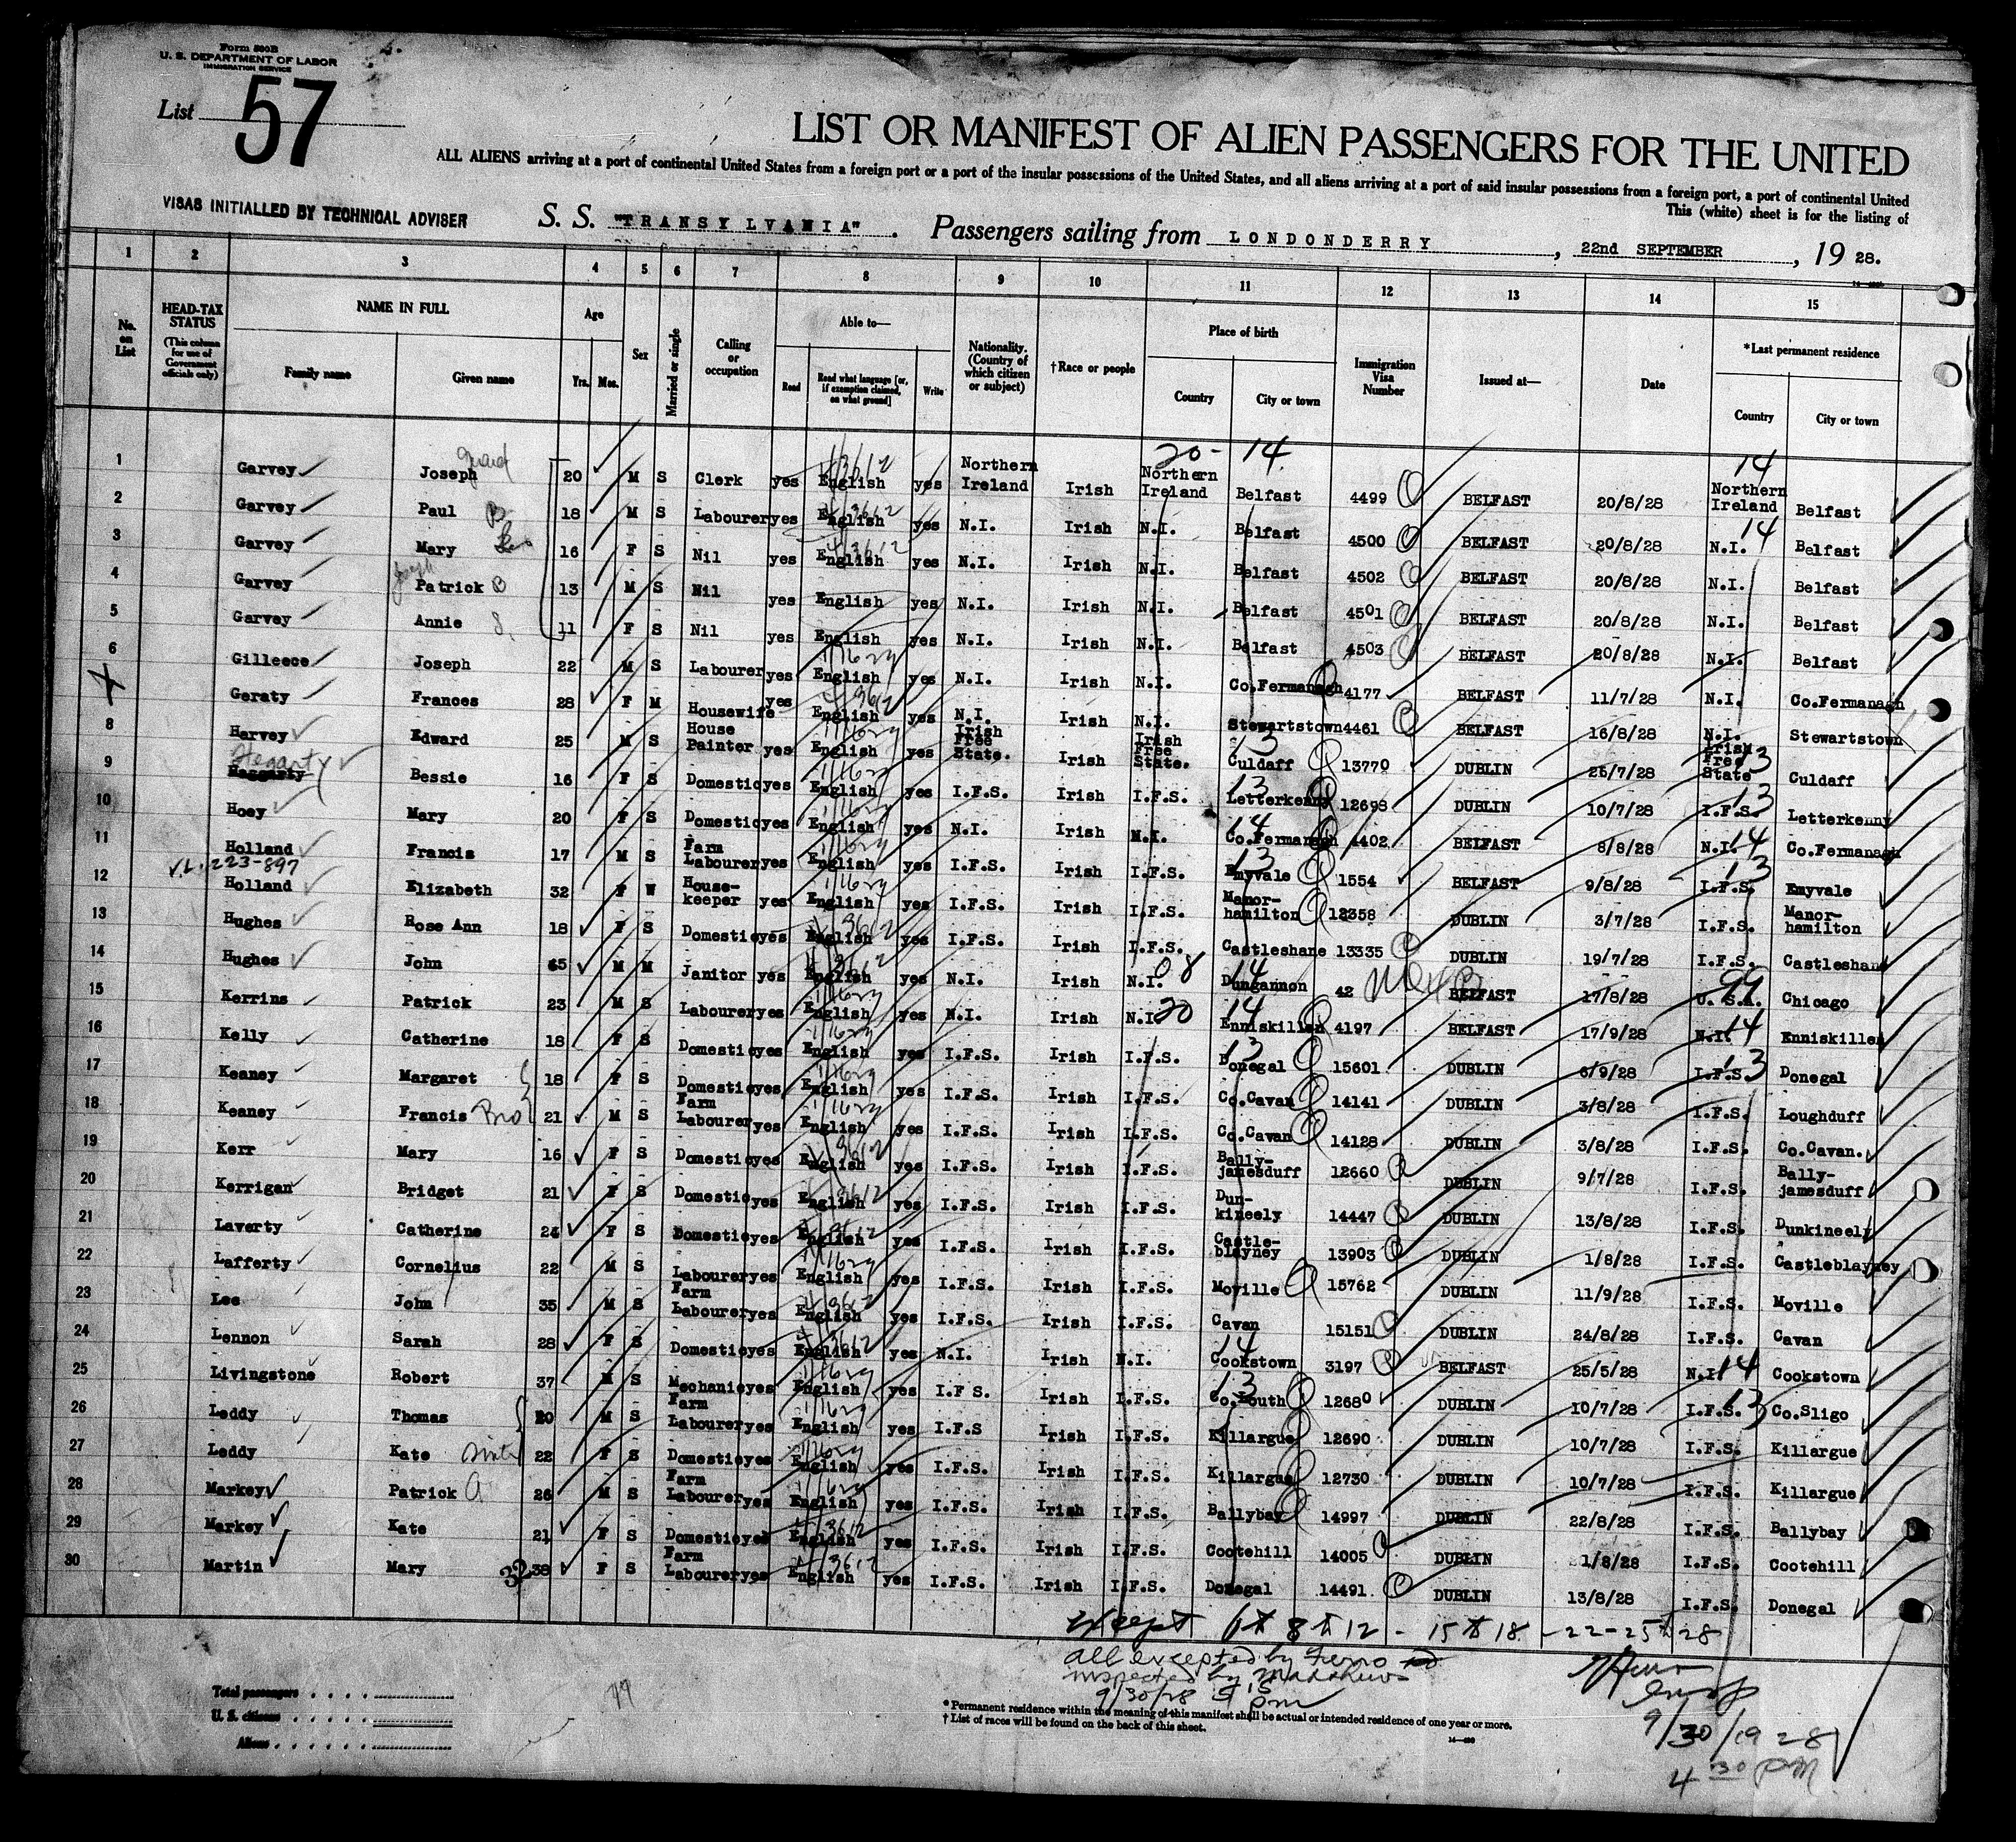 Form 500B
U. S. DEPARTMENT OF LABOR
IMMIGRATION SERVICE
List 57
LIST OR MANIFEST OF ALIEN PASSENGERS FOR THE UNITED
ALL ALIENS arriving at a port of continental United States from a foreign port or a port of the insular possessions of the United States, and all aliens arriving at a port of said insular possessions from a foreign port, a port of continental United
This (white) sheet is for the listing of
VISAS INITIALLED BY TECHNICAL ADVISER
S. S. "TRANSYLVANIA". Passengers sailing from LONDONDERRY, 22nd SEPTEMBER, 19 28.
1 2 3 4 5 6 7 8 9 10 11 12 13 14 15
No. on List
HEAD-TAX STATUS (This column for use of Government officials only)
NAME IN FULL Family name Given name
Age Yrs. Mos.
Sex
Married or single
Calling or occupation
Able to— Read Read what language [or, if exemption claimed, on what ground] Write
Nationality. (Country of which citizen or subject)
†Race or people
Place of birth Country City or town
Immigration Visa Number
Issued at—
Date
*Last permanent residence Country City or town
20- 14 14
1 Garvey Joseph 20 M S Clerk yes English yes Northern Ireland Irish Northern Ireland Belfast 4499 BELFAST 20/8/28 Northern Ireland Belfast
2 Garvey Paul 18 M S Labourer yes English yes N.I. Irish N.I. Belfast 4500 BELFAST 20/8/28 N.I. Belfast
3 Garvey Mary 16 F S Nil yes English yes N.I. Irish N.I. Belfast 4502 BELFAST 20/8/28 N.I. Belfast
4 Garvey Patrick B 13 M S Nil yes English yes N.I. Irish N.I. Belfast 4501 BELFAST 20/8/28 N.I. Belfast
5 Garvey Annie S. 11 F S Nil yes English yes N.I. Irish N.I. Belfast 4503 BELFAST 20/8/28 N.I. Belfast
6 Gilleece Joseph 22 M S Labourer yes English yes N.I. Irish N.I. Co.Fermanagh 4177 BELFAST 11/7/28 N.I. Co.Fermanagh
Geraty Frances 28 F M Housewife yes English yes N.I. Irish N.I. Stewartstown 4461 BELFAST 16/8/28 N.I. Stewartstown
8 Harvey Edward 25 M S House Painter yes English yes Irish Free State. Irish Irish Free State. 13 Culdaff 13770 DUBLIN 26/7/28 Irish Free State 13 Culdaff
9 Hegarty Haggarty Bessie 16 F S Domestic yes English yes I.F.S. Irish I.F.S. 13 Letterkenny 12698 DUBLIN 10/7/28 I.F.S. 13 Letterkenny
10 Hoey Mary 20 F S Domestic yes English yes N.I. Irish N.I. 14 Co.Fermanagh 4402 BELFAST 8/8/28 N.I. 14 Co.Fermanagh
11 Holland Francis 17 M S Farm Labourer yes English yes I.F.S. Irish I.F.S. 13 Emyvale 1554 BELFAST 9/8/28 I.F.S. 13 Emyvale
V.L. 223-897
12 Holland Elizabeth 32 F W House-keeper yes English yes I.F.S. Irish I.F.S. Manor-hamilton 12358 DUBLIN 3/7/28 I.F.S. Manor-hamilton
13 Hughes Rose Ann 18 F S Domestic yes English yes I.F.S. Irish I.F.S. Castleshane 13335 DUBLIN 19/7/28 I.F.S. Castleshane
14 Hughes John 45 M M Janitor yes English yes N.I. Irish N.I. 08 14 Dungannon 42 BELFAST 17/8/28 U.S.A. 99 Chicago
15 Kerrins Patrick 23 M S Labourer yes English yes N.I. Irish N.I. 20 14 Enniskillen 4197 BELFAST 17/9/28 N.I. 14 Enniskillen
16 Kelly Catherine 18 F S Domestic yes English yes I.F.S. Irish I.F.S. 13 Donegal 15601 DUBLIN 6/9/28 I.F.S. 13 Donegal
17 Keaney Margaret 18 F S Domestic yes English yes I.F.S. Irish I.F.S. Co.Cavan 14141 DUBLIN 3/8/28 I.F.S. Loughduff
18 Keaney Francis Bro 21 M S Farm Labourer yes English yes I.F.S. Irish I.F.S. Co.Cavan 14128 DUBLIN 3/8/28 I.F.S. Co.Cavan.
19 Kerr Mary 16 F S Domestic yes English yes I.F.S. Irish I.F.S. Bally-jamesduff 12660 DUBLIN 9/7/28 I.F.S. Bally-jamesduff
20 Kerrigan Bridget 21 F S Domestic yes English yes I.F.S. Irish I.F.S. Dun-kineely 14447 DUBLIN 13/8/28 I.F.S. Dunkineely
21 Laverty Catherine 24 F S Domestic yes English yes I.F.S. Irish I.F.S. Castle-blayney 13903 DUBLIN 1/8/28 I.F.S. Castleblayney
22 Lafferty Cornelius 22 M S Labourer yes English yes I.F.S. Irish I.F.S. Moville 15762 DUBLIN 11/9/28 I.F.S. Moville
23 Lee John 35 M S Farm Labourer yes English yes I.F.S. Irish I.F.S. Cavan 15151 DUBLIN 24/8/28 I.F.S. Cavan
24 Lennon Sarah 28 F S Domestic yes English yes N.I. Irish N.I. 14 Cookstown 3197 BELFAST 25/5/28 N.I. 14 Cookstown
25 Livingstone Robert 37 M S Mechanic yes English yes I.F S. Irish I.F.S. 13 Co.Louth 12680 DUBLIN 10/7/28 I.F.S. 13 Co.Sligo
26 Leddy Thomas 20 M S Farm Labourer yes English yes I.F.S Irish I.F.S. Killargue 12690 DUBLIN 10/7/28 I.F.S. Killargue
27 Leddy Kate 22 F S Domestic yes English yes I.F.S. Irish I.F.S. Killargue 12730 DUBLIN 10/7/28 I.F.S. Killargue
28 Markey Patrick 26 M S Farm Labourer yes English yes I.F.S. Irish I.F.S. Ballybay 14997 DUBLIN 22/8/28 I.F.S. Ballybay
29 Markey Kate 21 F S Domestic yes English yes I.F.S. Irish I.F.S. Cootehill 14005 DUBLIN 1/8/28 I.F.S. Cootehill
30 Martin Mary 32 38 F S Farm Labourer yes English yes I.F.S. Irish I.F.S. Donegal 14491 DUBLIN 13/8/28 I.F.S. Donegal
Except 6 to 8 to 12 - 15 to 18 - 22 - 25 to 28
all excepted by Ferro
inspected by Matthews
9/30/28 5 15 pm
9/30/1928
4 30 PM
Total passengers
U. S. citizens
Aliens
* Permanent residence within the meaning of this manifest shall be actual or intended residence of one year or more.
† List of races will be found on the back of this sheet.